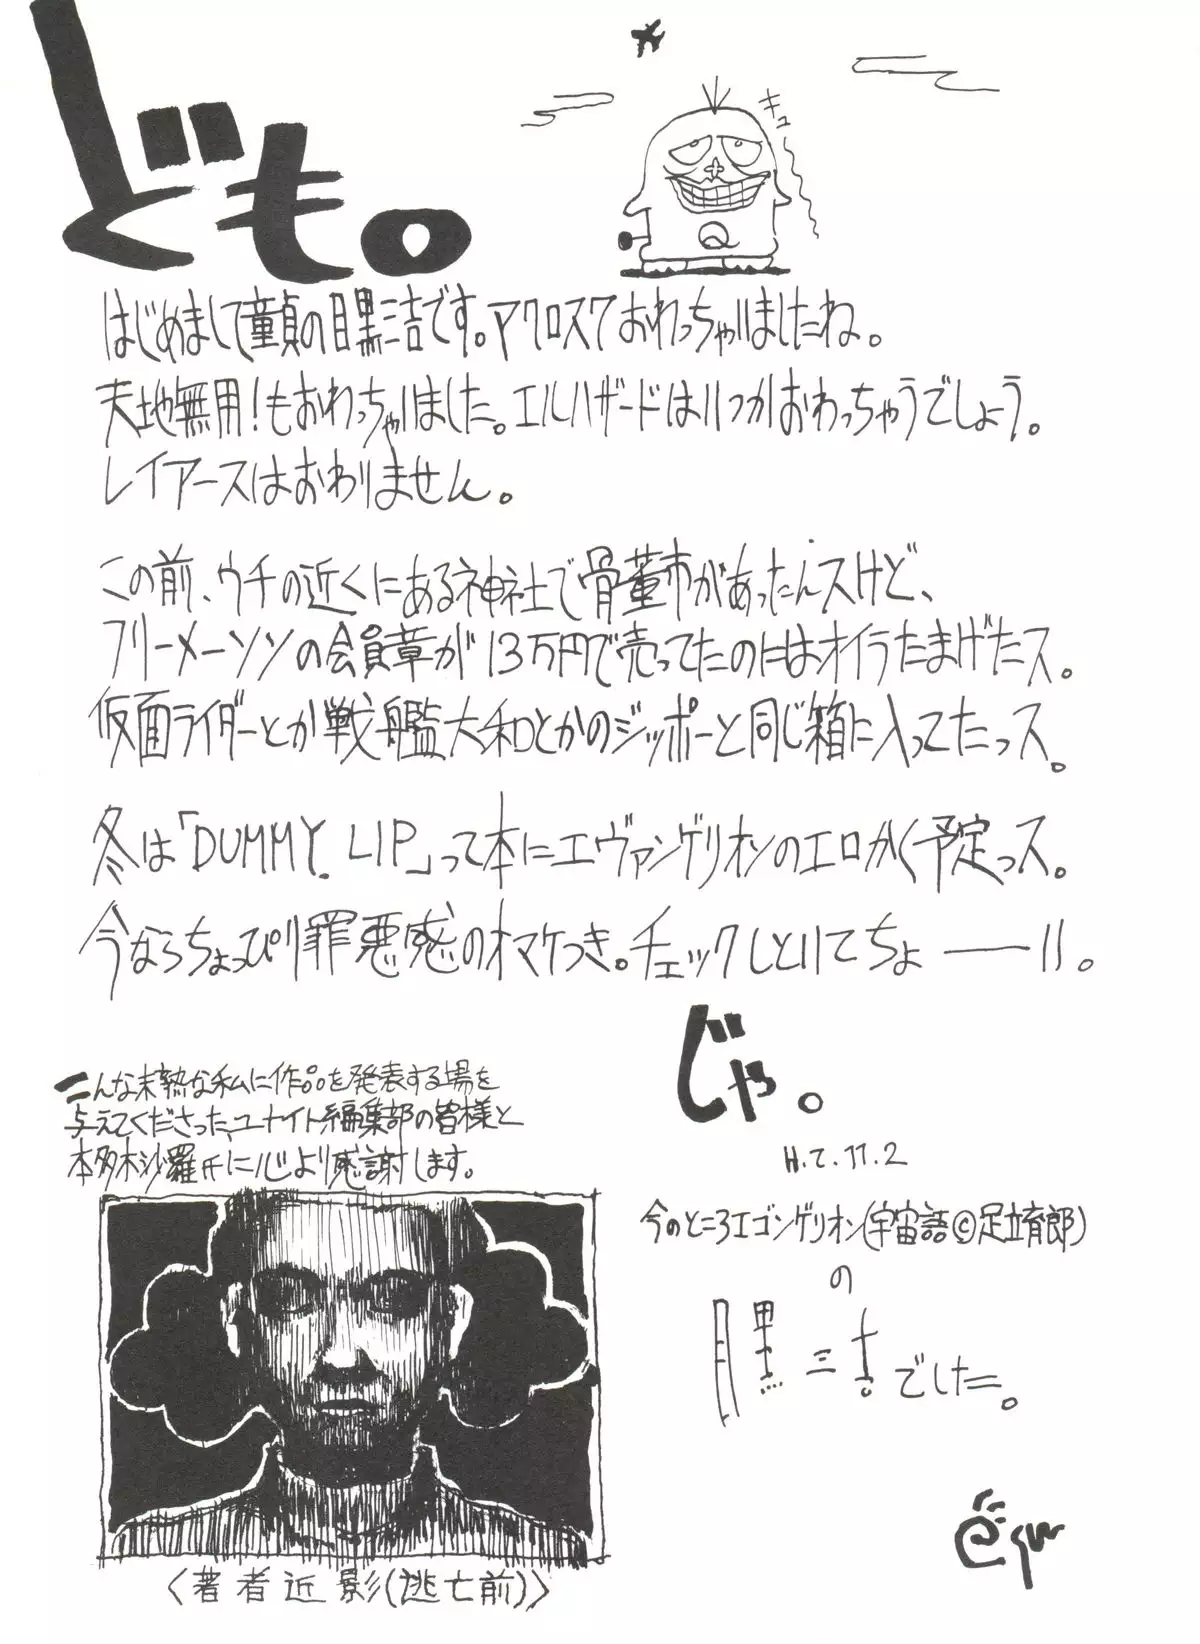 ども。
キュー
Q
はじめまして童貞の目黒三吉です。アクロスケおわっちゃいましたね。
天地無用!もおわっちゃいました。エルハザードはいつかおわっちゃうでしょう。
レイアースはおわりません。
この前、ウチの近くにある神社で骨董市があったんスけど、
フリーメーソンの会員章が13万円で売ってたのにはオイラたまげたス。
仮面ライダーとか戦艦大和とかのジッポーと同じ箱に入ってたっス。
冬は「DUMMY LIP」って本にエヴァンゲリオンのエロかく予定っス。
今ならちょっぴり罪悪感のオマケつき。チェックしといてちょーーい。
じゃ。
H.7.11.2
こんな未熟な私に作品を発表する場を
与えてくださった、ユナイト編集部の皆様と
本多木沙羅氏に心より感謝します。
今のところエゴンゲリオン(宇宙語©足立育郎)
の
目黒三吉でした。
〈著者近影(逃亡前)〉